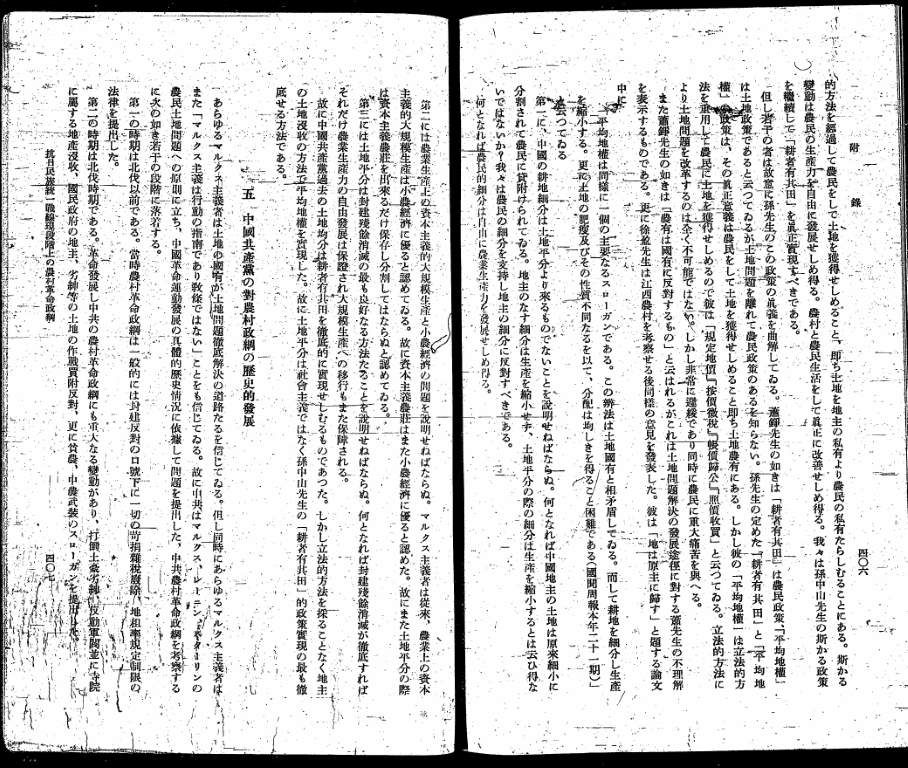 附錄
四〇六
的方法を經過して農民をして土地を獲得せしめること、即ち土地を地主の私有より農民の私有たらしむることにある。斯かる
變動は農民の生産力を自由に發展せしめ得る。農村と農民生活をして眞正に改善せしめ得る。我々は孫中山先生の斯かる政策
を繼續して「耕者有其田」を眞正實現すべきである。
但し若干の者は故意に孫先生のこの政策の眞義を曲解してゐる。蕭錚先生の如きは「耕者有其田」は農民政策、「平均地權」
は土地政策であると云つてゐるが土地問題を離れて農民政策のあるを知らない。孫先生の定めた「耕者有其田」と「平均地
權」の政策は、その眞正意義は農民をして土地を獲得せしめること即ち土地農有にある。しかし彼の「平均地權」は立法的方
法を重用して農民に土地を獲得せしめるので彼は「規定地價」「按價徴税」「漲價歸公」「照價收買」と云つてゐる。立法的方法に
より土地問題を改革するのは全く不可能ではない。しかし非常に遲緩であり同時に農民に重大痛苦を與へる。
また蕭錚先生の如きは「農有は國有に反對するもの」と云はれるがこれは土地問題解決の發展途徑に對する蕭先生の不理解
を表示するものである。更に徐盈先生は江西農村を考察せる後同樣の意見を發表した。彼は「地は原主に歸す」と題する論文
中に
「平均地權は同樣に一個の主要なるスローガンである。この辨法は土地國有と相矛盾してゐる。而して耕地を細分し生產
を縮小する。更に土地の肥瘦及びその性質不同なるを以て、分配は均しきを得ること困難である(國聞周報本年二十一期)」
と云つてゐる
第一に、中國の耕地細分は土地平分より來るものでないことを說明せねばならぬ。何となれば中國地主の土地は原來細小に
分割されて農民に貸附けられてゐる。地主のなす細分は生產を縮小せず、土地平分の際の細分は生產を縮小するとは云ひ得な
いではないか?我々は農民の細分を支持し地主の細分に反對すべきである。
何となれば農民的細分は自由に農業生產力を發展せしめ得る。
第二には農業生產上の資本主義的大規模生產と小農經濟の問題を說明せねばならぬ。マルクス主義者は從來、農業上の資本
主義的大規模生產は小農經濟に優ると認めてゐる。故に資本主義農莊はまた小農經濟に優ると認めた。故にまた土地平分の際
は資本主義農莊を出來るだけ保存し分割してはならぬと認めてゐる。
第三には土地平分は封建殘餘消滅の最も良好なる方法たることを說明せねばならぬ。何となれば封建殘餘消滅が徹底すれば
それだけ農業生產力の自由發展は保證され大規模生產への移行もまた保障される。
故に中國共產黨過去の土地均分は耕者有其田を徹底的に實現せしむるものであつた。しかし立法的方法を採ることなく地主
の土地沒收の方法で平均地權を實現した。故に土地平分は社會主義ではなく孫中山先生の「耕者有其田」的政策實現の最も徹
底せる方法である。
五 中國共產黨の對農村政綱の歷史的發展
あらゆるマルクス主義者は土地の國有が土地問題徹底解決の道路たるを信じてゐる。但し同時にあらゆるマルクス主義者は
また「マルクス主義は行動の指南であり敎條ではない」ことをも信じてゐる。故に中共はマルクス、レーニン、スターリンの
農民土地問題への原則に立ち、中國革命運動發展の具體的歷史情況に依據して問題を提出した。中共農村革命政綱を考察する
に次の如き若干の段階に落着する。
第一の時期は北伐以前である。當時農村革命政綱は一般的には封建反對の口號下に一切の苛捐雜稅廢除、地租率規定制限の
法律を提出した。
第二の時期は北伐時期である。革命發展し中共の農村革命政綱にも重大なる變動があり、打倒土豪劣紳、反動軍閥並に寺院
に屬する地產沒收、國民政府の地主、劣紳等の土地の作戰買附反對、更に貧農、中農武裝のスローガンを提出した。
抗日民族統一戰線現段階上の農村革命政綱
四〇七